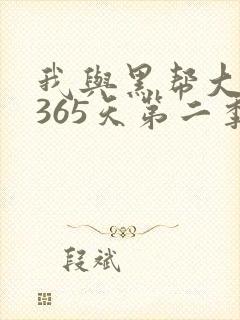 我與黑幫大
365天第二季
段斌